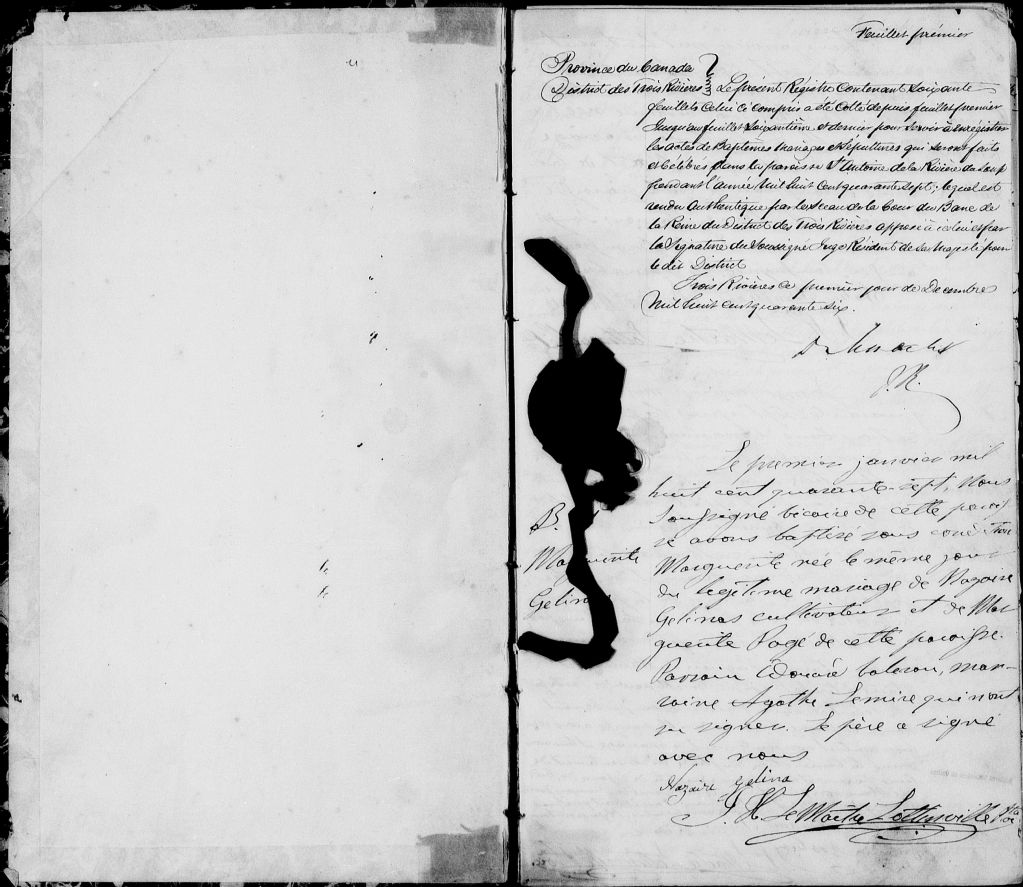 Feuillet prémier
Province du Canada
District des Trois Rivières
Le présent Régistre Contenant Soixante
feuillets Celui ci compris a été Cotté depuis feuillet premier
Jusqu'au feuillet Soixantième et dernier pour Servir à enrégistrer
les actes de Baptêmes Mariages et Sépultures qui seront faits
et Célébrés dans la paroisse St Antoine de la Rivière du Loup
pendant l'année Mil huit Cent quarante Sept; lequel est
rendu Authentique par le Sceau de la Cour du Banc de
la Reine du District des Trois Rivières apposé à celui ci et par
la Signature du Soussigné Juge Résident de Sa Majesté pour
le dit District
Trois Rivières ce premier jour de Décembre
Mil huit cent quarante six.
B.
Marguerite
Gelinas
Le premier janvier mil
huit cent quarante-sept, Nous
Soussigné vicaire de cette parois
se avons baptisé sous condition
Marguerite née le même jour
du légitime mariage de Nazaire
Gelinas cultivateur et de Mar
guerite Pagé de cette paroisse.
Parrain Edouard, mar-
raine Agathe Lemire qui n'ont
su signer. Le père a signé
avec nous
Nazaire Gelina
J. H. Le Maître Lottinville Ptre
Vic